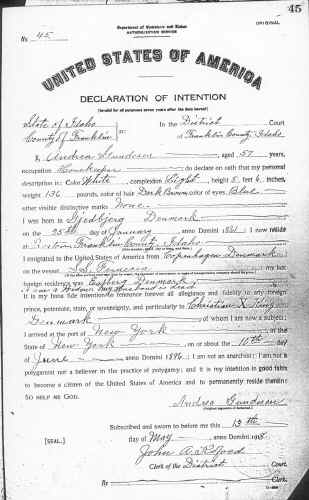 45
ORIGINAL
Department of Commerce and Labor
NATURALIZATION SERVICE
No. 45
UNITED STATES OF AMERICA
DECLARATION OF INTENTION
(Invalid for all purposes seven years after the date hereof)
State of Idaho
County of Franklin ss:
In the District Court
of Franklin County Idaho
I, Andrea Gundersen, aged 57 years,
occupation Housekeeper, do declare on oath that my personal
description is: Color White, complexion Light, height 5 feet 6 inches,
weight 136 pounds, color of hair Dark Brown, color of eyes Blue
other visible distinctive marks None
I was born in Denmark
on the 25th day of January, anno Domini 1861; I now reside
at Franklin County, Idaho
I emigrated to the United States of America from Copenhagen Denmark
on the vessel S.S.; my last
foreign residence was Esbjerg Denmark
It is my bona fide intention to renounce forever all allegiance and fidelity to any foreign
prince, potentate, state, or sovereignty, and particularly to Christian X King
Denmark, of whom I am now a subject;
I arrived at the port of New York, in the
State of New York, on or about the 10th day
of June, anno Domini; I am not an anarchist; I am not a
polygamist nor a believer in the practice of polygamy; and it is my intention in good faith
to become a citizen of the United States of America and to permanently reside therein:
SO HELP ME GOD.
Andrea Gundersen
(Original signature of declarant)
Subscribed and sworn to before me this 13th
[SEAL.] day of May, anno Domini 1918
John A.
Clerk of the District Court.
By, Clerk.